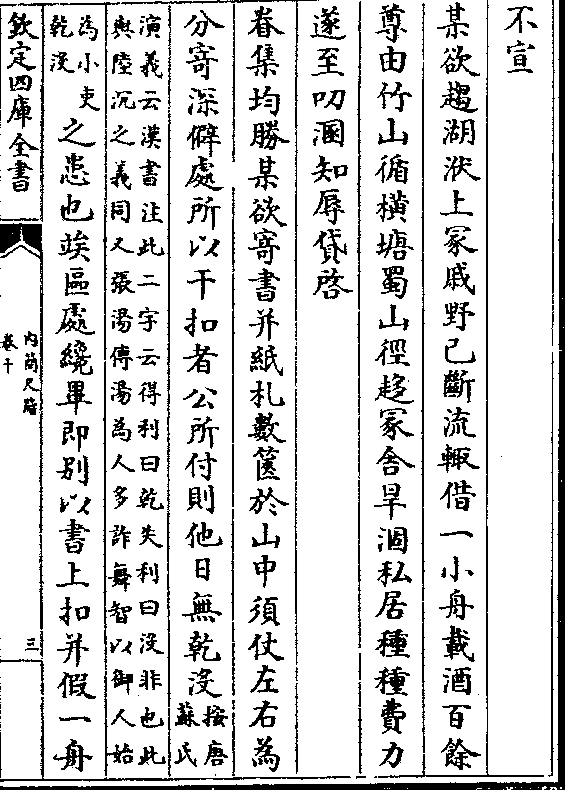 不宣
某欲趨湖㳇上冢戚野已斷流輒借一小舟載酒百餘
尊由竹山循橫塘蜀山徑趍冢舍旱涸私居種種費力
遂至叨溷知辱貸啓
眷集均勝某欲寄書并紙札數篋於山中須仗左右為
分寄深僻處所以干扣者公所付則他日無乾沒按唐蘇氏
演義云漢書注此二字云得利曰乾失利曰沒非也此
與陸沉之義同又張湯傳湯為人多詐舞智以御人始
為小吏乾沒之患也竢區處纔畢即別以書上扣并假一舟
欽定四庫全書
內簡尺牘
卷十
三